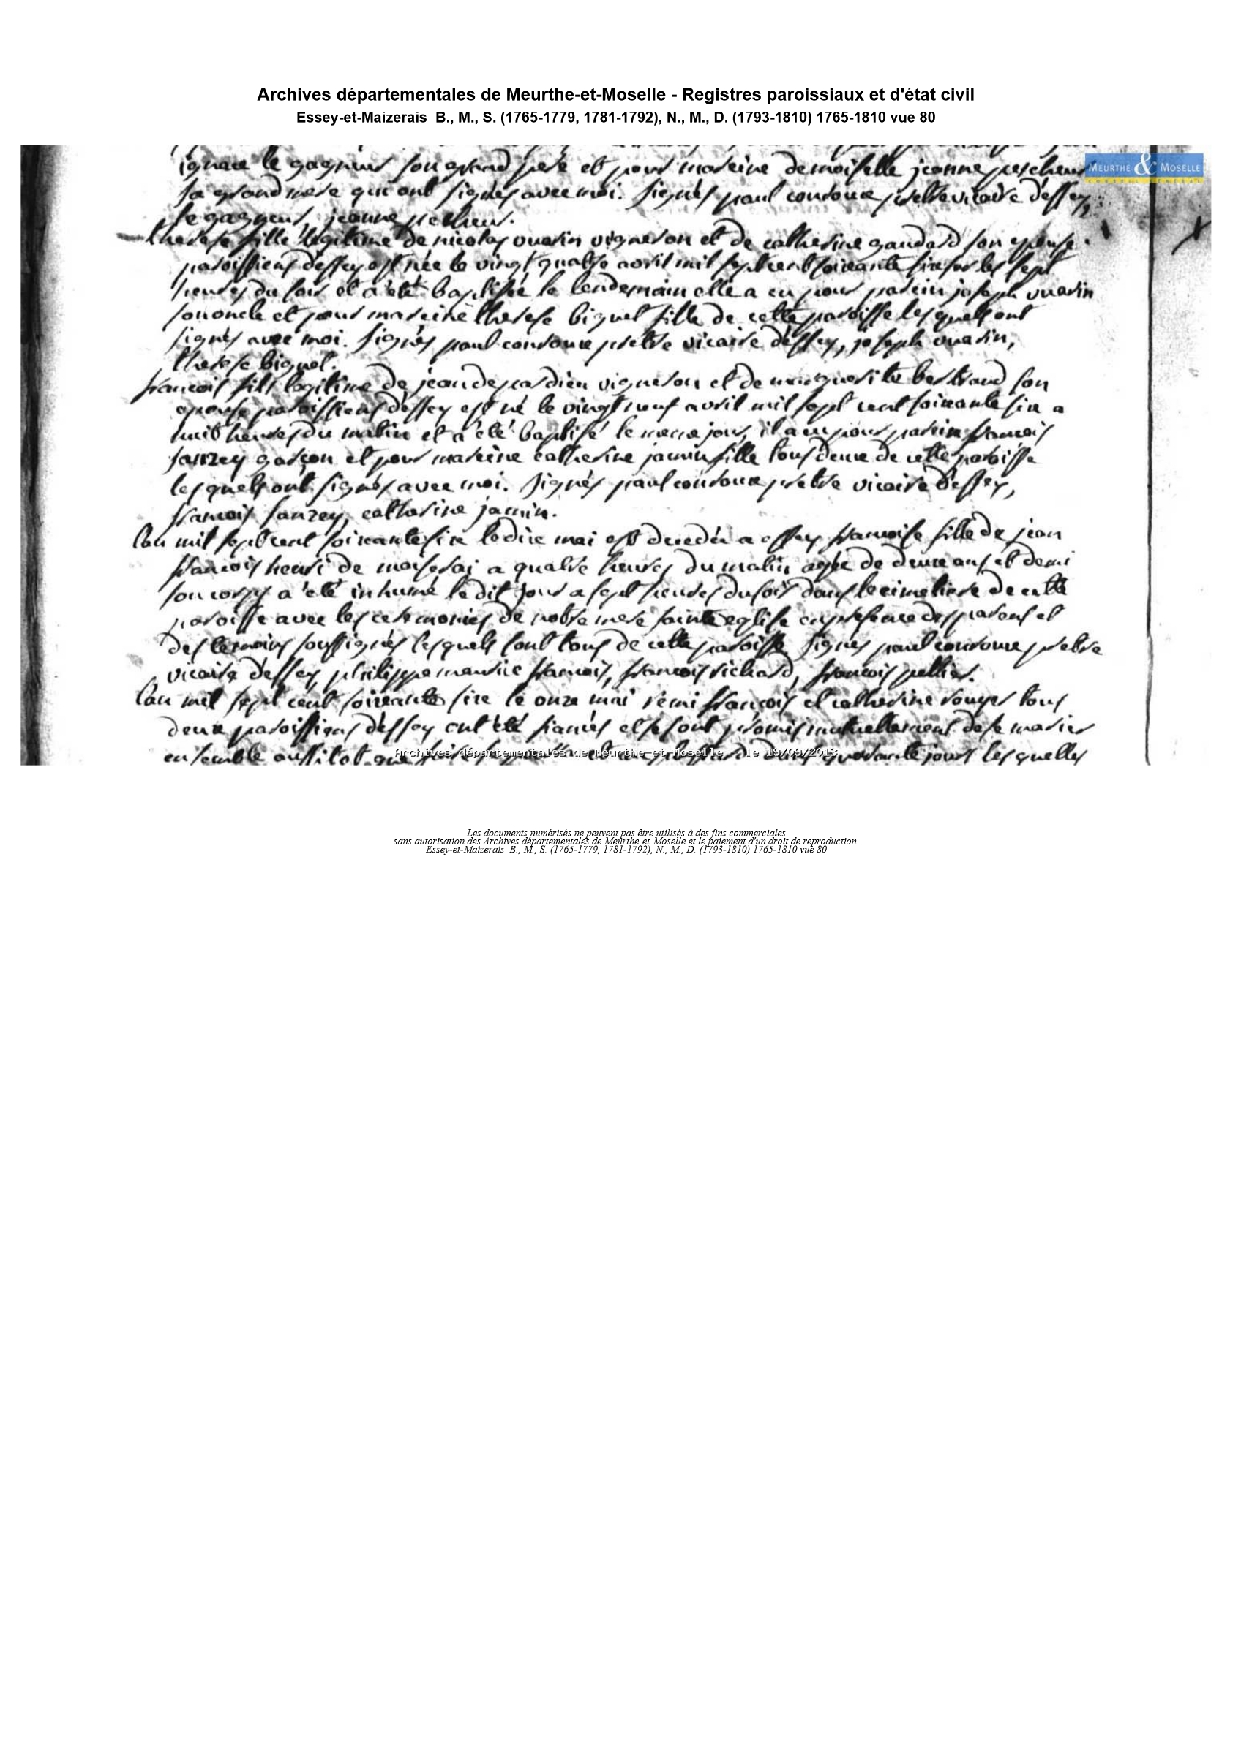 Archives départementales de Meurthe-et-Moselle - Registres paroissiaux et d'état civil
Essey-et-Maizerais B., M., S. (1765-1779, 1781-1792), N., M., D. (1793-1810) 1765-1810 vue 80
MEURTHE & MOSELLE
ignace le gagneur son grand pere et pour mareine demoiselle jeanne
sa grand mere qui ont signés avec moi. signés paul prettre vicaire d'essey,
le gagneur, jeanne
therese fille legitime de nicolas vuarin vigneron et de catherine gandard son epouse
paroissiens d'essey est née le vingt quatre avril mil sept cent soixante six sur les sept
heures du soir et a été baptisée le lendemain elle a eu pour parein joseph vuarin
son oncle et pour mareine therese biquet fille de cette paroisse lesquels ont
signés avec moi. signés paul prettre vicaire d'essey, joseph vuarin,
therese biquet.
francois fils legitime de jean vigneron et de marguerite bertrand son
epouse paroissiens d'essey est né le vingt neuf avril mil sept cent soixante six a
huit heures du matin et a été baptisé le meme jour, il a eu pour parein francois
sanzey garçon et pour mareine catherine jamin fille tous deux de cette paroisse
lesquels ont signés avec moi. signés paul prettre vicaire d'essey,
francois sanzey, catherine jamin.
l'an mil sept cent soixante six le dix mai est decedée a essey francoise fille de jean
francois henri de a quatre heures du matin agée de deux ans et demi
son corps a été inhumé le dit jour a sept heures du soir dans le cimetiere de cette
paroisse avec les ceremonies de notre mere sainte eglise en presence des parens et
des temoins soussignés lesquels sont tous de cette paroisse signés paul prettre
vicaire d'essey, philippe maurice francois, francois richard, francois
l'an mil sept cent soixante six le onze mai remi francois et catherine rouyer tous
deux paroissiens d'essey ont été fiancés et se sont promis mutuellement de se marier
ensemble aussitot que quarante jours lesquelles
Archives départementales de Meurthe-et-Moselle
Les documents numérisés ne peuvent pas être utilisés à des fins commerciales
sans autorisation des Archives départementales de Meurthe et Moselle et le paiement d'un droit de reproduction
Essey-et-Maizerais B., M., S. (1765-1779, 1781-1792), N., M., D. (1793-1810) 1765-1810 vue 80